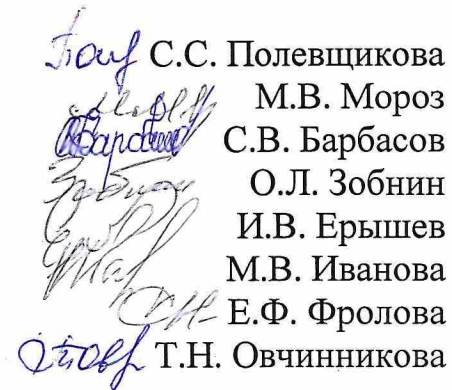 С.С. Полевщикова
М.В. Мороз
С.В. Барбасов
О.Л. Зобнин
И.В. Ерышев
М.В. Иванова
Е.Ф. Фролова
Т.Н. Овчинникова